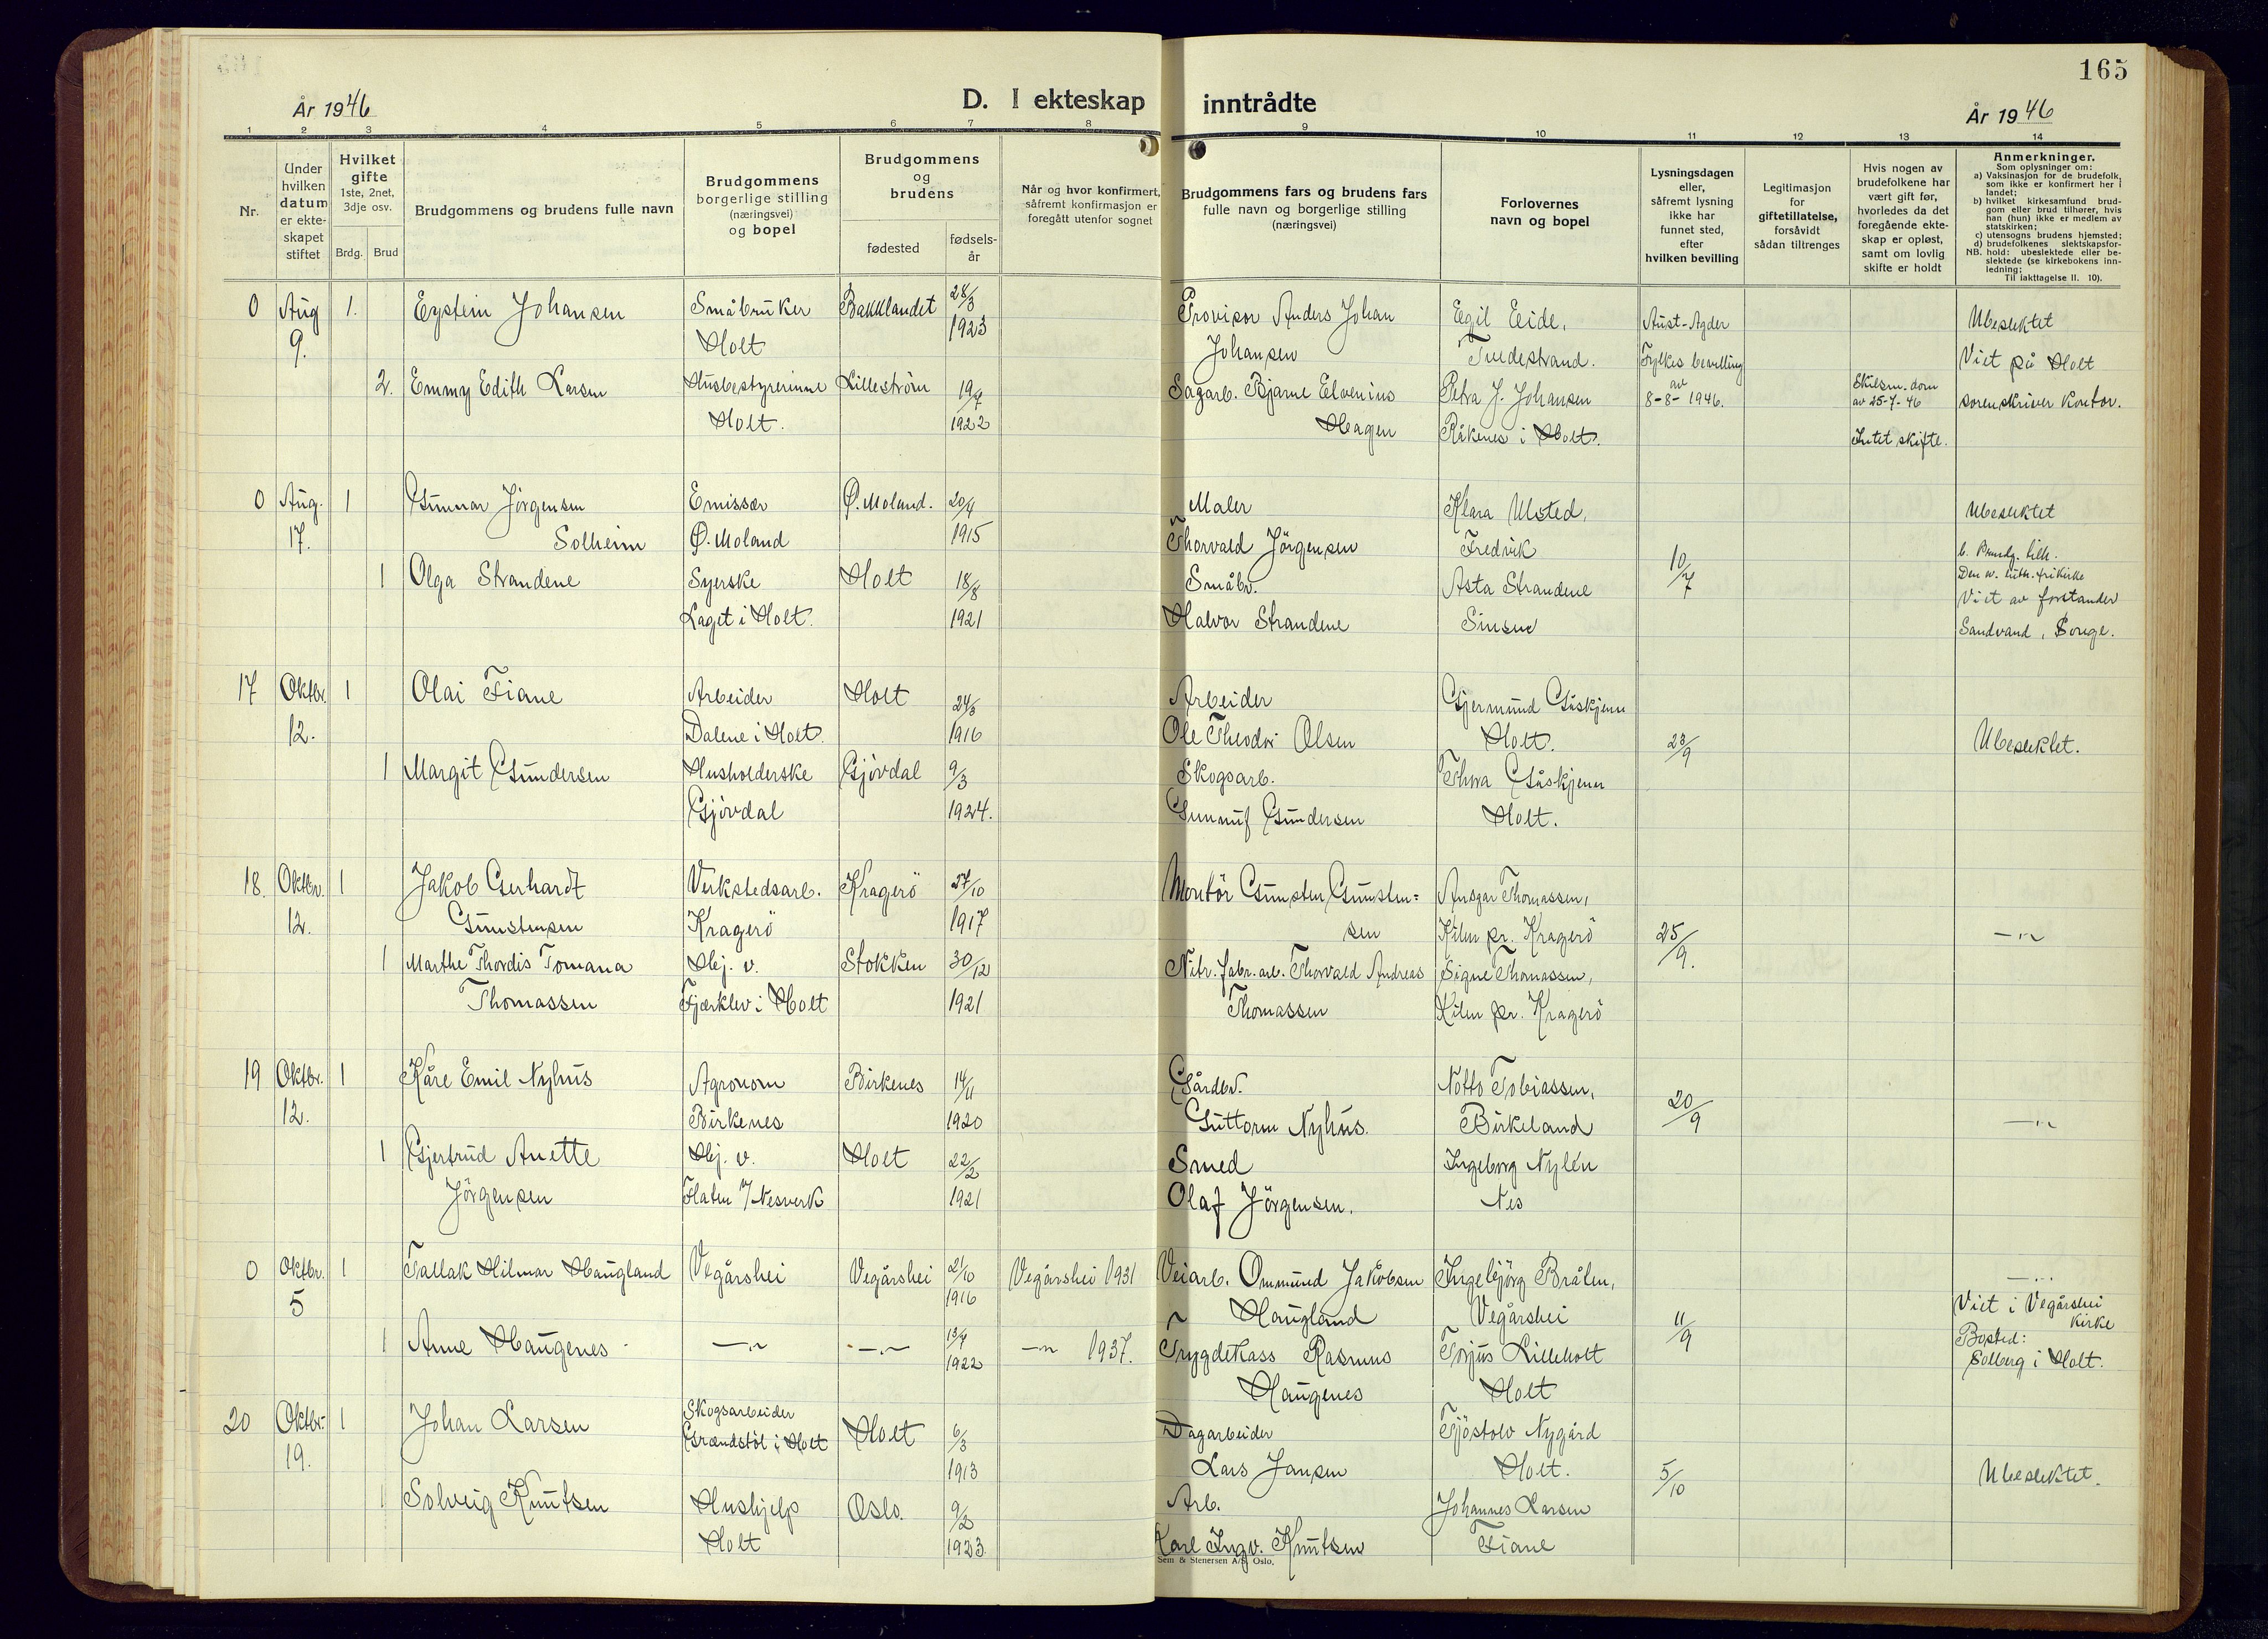 165
År 1946
D. I ekteskap inntrådte
År 1946
1 2 3 4 5 6 7 8 9 10 11 12 13 14
Nr.
Under hvilken datum er ekteskapet stiftet
Hvilket gifte 1ste, 2net, 3dje osv.
Brdg. Brud
Brudgommens og brudens fulle navn
Brudgommens borgerlige stilling (næringsvei) og bopel
Brudgommens og brudens
fødested
fødsels-år
Når og hvor konfirmert, såfremt konfirmasjon er foregått utenfor sognet
Brudgommens fars og brudens fars fulle navn og borgerlige stilling (næringsvei)
Forlovernes navn og bopel
Lysningsdagen eller, såfremt lysning ikke har funnet sted, efter hvilken bevilling
Legitimasjon for giftetillatelse, forsåvidt sådan tiltrenges
Hvis nogen av brudefolkene har vært gift før, hvorledes da det foregående ekteskap er opløst, samt om lovlig skifte er holdt
Anmerkninger.
Som oplysninger om:
a) Vaksinasjon for de brudefolk, som ikke er konfirmert her i landet;
b) hvilket kirkesamfund brudgom eller brud tilhører, hvis han (hun) ikke er medlem av statskirken;
c) utensogns brudens hjemsted;
d) brudefolkenes slektskapsforhold: ubeslektede eller beslektede (se kirkebokens innledning;
NB.
Til iakttagelse II. 10).
0 Aug 1. Eystein Johansen Småbruker Bakklandet 28/3 Provisor Anders Johan Egil Eide, Aust-Agder Ubeslektet
9. Holt 1923 Johansen Tvedestrand. Fylkes bevilling Viet på Holt
2. Emmy Edith Larsen Husbestyrerinne Lilleström 19/7 Sagarb. Bjarne Elvenius Petra J. Johansen av 8-8-1946. Skilsm. dom av 25-7-46 sorenskriver kontor.
Holt. 1922 Hagen Råkenes i Holt. Intet skifte.
0 Aug. 1 Gunnar Jörgensen Emissær Ø. Moland. 20/4 Maler Klara Ulsted, Ubeslektet
17. Solheim Ø. Moland 1915 Thorvald Jörgensen Fredvik 10/7 b. Brudg. tilh.
1 Olga Strandene Syerske Holt 18/8 Småbr. Asta Strandene Den ev. luth. frikirke
Viet av forstander
Laget i Holt. 1921 Halvor Strandene Sinsen Sandvand, Songe.
17 Oktbr. 1 Olai Fiane Arbeider Holt 24/3 Arbeider Gjermund Gåskjenn
12. Dalene i Holt. 1916 Ole Theodor Olsen Holt. 23/9 Ubeslektet.
1 Margit Gundersen Husholderske Gjövdal 9/3 Skogsarb. Thora Gåskjenn
Gjövdal 1924. Gunnuf Gundersen Holt.
18. Oktbr. 1 Jakob Gerhardt Verkstedsarb. Kragerö 27/10 Montör Gunsten Gunsten= Ansgar Thomassen,
12. Gunstensen Kragerö 1917 sen Kilen pr. Kragerö 25/9. —"—
1 Marthe Thordis Tomana Hej. v. Stokken 30/12 Nitr. fabr. arb. Thorvald Andreas Signe Thomassen,
Thomassen Fjærklev i Holt 1921 Thomassen Kilen pr. Kragerö
19 Oktbr. 1 Kåre Emil Nyhus Agronom Birkenes 14/11 Gårdbr. Notto Tobiassen,
12. Birkenes 1920 Guttorm Nyhus. Birkeland 20/9 —"—
1 Gjertrud Anette Hej. v. Holt 22/2 Smed Ingeborg Nylén
Jörgensen Flaten v/ Nesverk 1921 Olaf Jörgensen. Nes
0 Oktbr. 1 Tallak Hilmar Haugland Vegårshei Vegårshei 21/10 Vegårshei 1931 Veiarb. Ommund Jakobsen Ingebjörg Bråten, —"—
5 1916 Haugland Vegårshei 11/9 Viet i Vegårshei kirke
1 Anne Haugenes —"— —"— 13/7 —"— 1937. Trygdekass Rasmus Torjus Lilleholt Bosted:
1922 Haugenes Holt Solberg i Holt.
20 Oktbr. 1 Johan Larsen Skogsarbeider Holt 6/3 Dagarbeider Tjöstolv Nygård
19. Grændstöl i Holt 1913 Lars Jansen Holt. 5/10 Ubeslektet.
1 Solveig Knutsen Hushjelp Oslo. 9/2 Arb. Johannes Larsen
Holt 1923. Karl Ingv. Knutsen Fiane
Sem & Stenersen A/S, Oslo.